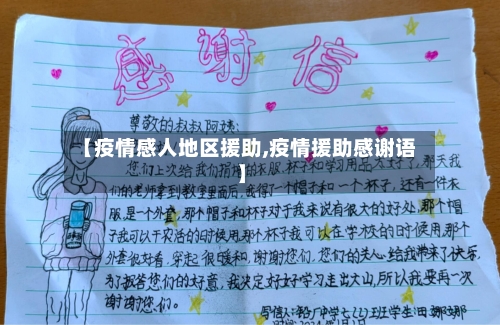 感谢信
尊敬的叔叔阿姨:
【疫情感人地区援助,疫情援助感谢语
】
上次您们给我们捐的衣服,杯子和学习用品太好了,那天我
们的老师拿到教室里面后,我得了一个帽子和一个杯子,还有一件衣
服,是一个外套,那个帽子和杯子对于我来说有很大的好处,那个帽
子我可以干农活的时候用,那个杯子我可以在学校的时候用,那个
外套很好看,穿起很暖和,谢谢您们,您们的关心给我带来了快乐,
为了报答您们的好意,我决定好好学习走出大山,所以我要再一次
谢谢您们。
写信人:中学七(2)班学生